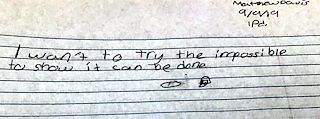 Matthew Davis
9/9/19
1Pd
I want to try the impossible
to show it can be done